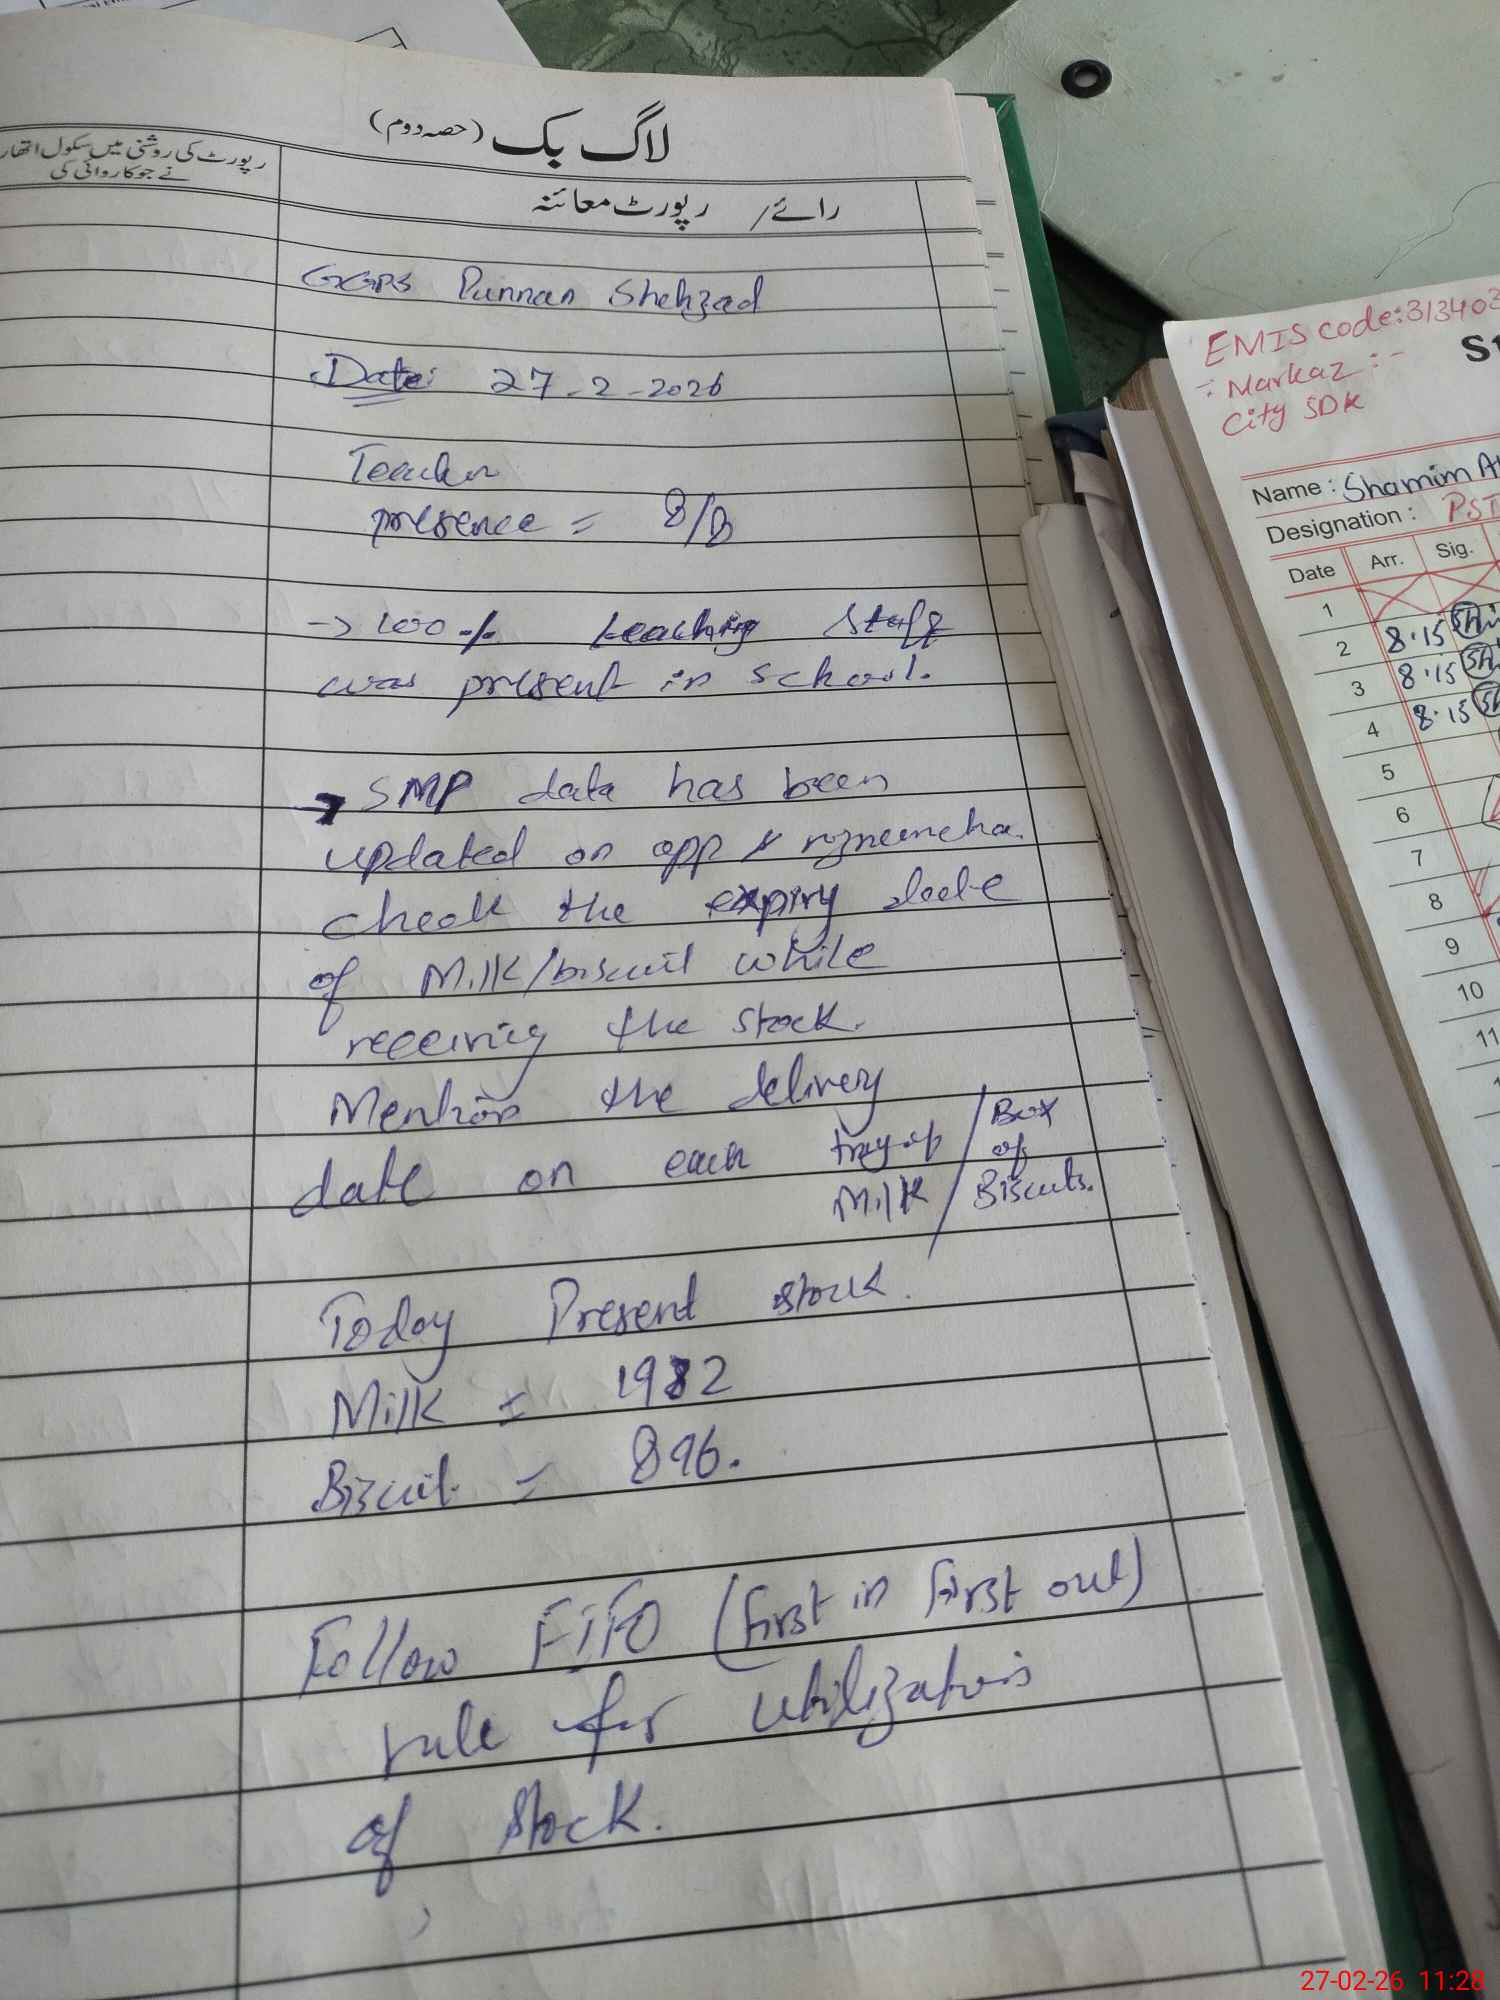 لاگ بک (حصہ دوم)
رائے / رپورٹ معائنہ
رپورٹ کی روشنی میں سکول اتھار
نے جو کاروائی کی
GGPS Punnan Shehzad
Date: 27-2-2026
Teacher
presence = 8/8
→ 100% teaching staff
was present in school.
→ SMP data has been
updated on app & roznamcha.
check the expiry date
of Milk/biscuit while
receiving the stock.
Mention the delivery
date on each tray of Milk / Box of Biscuits.
Today Present stock.
Milk = 1982
Biscuit = 896.
Follow FIFO (first in first out)
rule for utilization
of stock.
EMIS code:313403
Markaz :-
City SDK
Name : Shamim
Designation : PST
Date Arr. Sig.
1
2 8.15
3 8.15
4 8.15
5
6
7
8
9
10
11
27-02-26 11:28